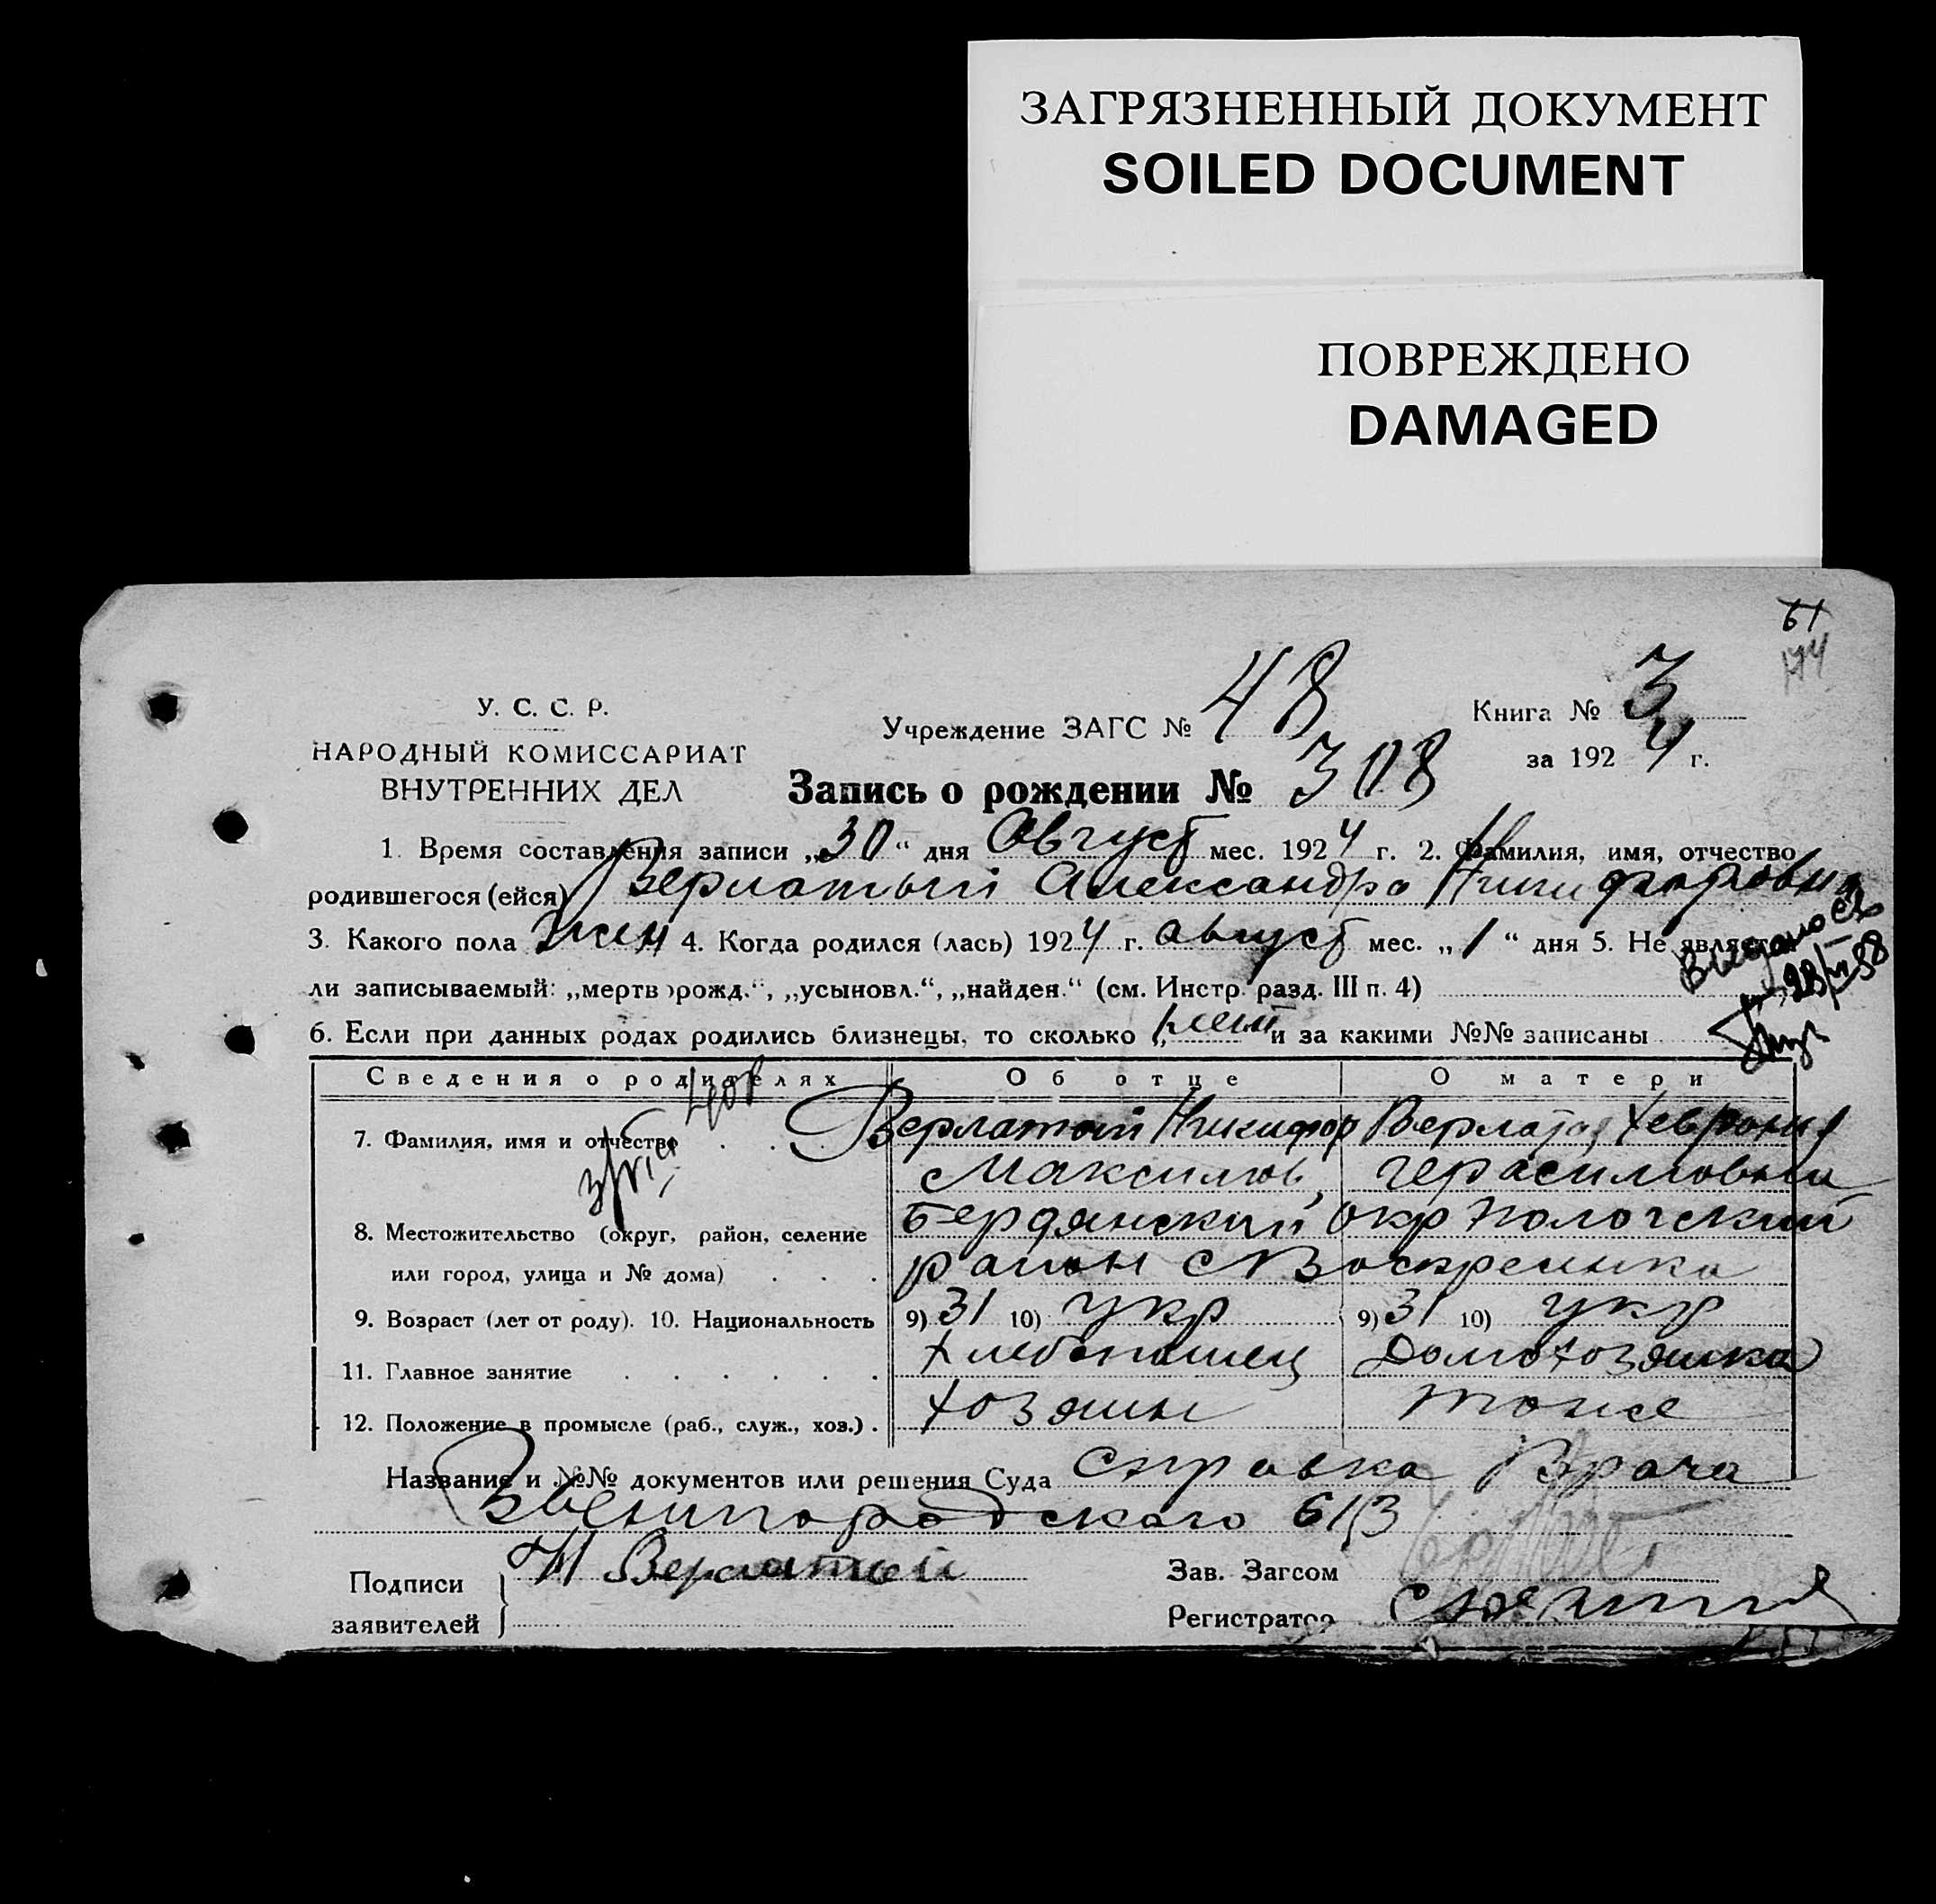 ЗАГРЯЗНЕННЫЙ ДОКУМЕНТ
SOILED DOCUMENT
ПОВРЕЖДЕНО
DAMAGED
61
174
У. С. С. Р.
НАРОДНЫЙ КОМИССАРИАТ
ВНУТРЕННИХ ДЕЛ
Учреждение ЗАГС № 48
Книга № 3
за 1924 г.
Запись о рождении № 308
1. Время составления записи „30“ дня Август мес. 1924 г. 2. Фамилия, имя, отчество
родившегося (ейся) Верлатый Александра Никифоровна
3. Какого пола жен 4. Когда родился (лась) 1924 г. август мес. „1“ дня 5. Не является
ли записываемый: „мертворожд.“, „усыновл.“, „найден.“ (см. Инстр. разд. III п. 4)
Выдано св
6. Если при данных родах родились близнецы, то сколько нет и за какими №№ записаны
Сведения о родителях Об отце О матери
7. Фамилия, имя и отчество Верлатый Никифор Верлатая Хеврония
Максимов, Герасимовна
8. Местожительство (округ, район, селение Бердянский Окр Пологский
или город, улица и № дома) район с Воскресенка
9. Возраст (лет от роду). 10. Национальность 9) 31 10) укр 9) 31 10) укр
11. Главное занятие Хлебопашец Домохозяйка
12. Положение в промысле (раб., служ., хоз.) хозяин тоже
Название и №№ документов или решения Суда Справка Врача
Звенигородского
Подписи заявителей Н Верлатый
Зав. Загсом
Регистратор